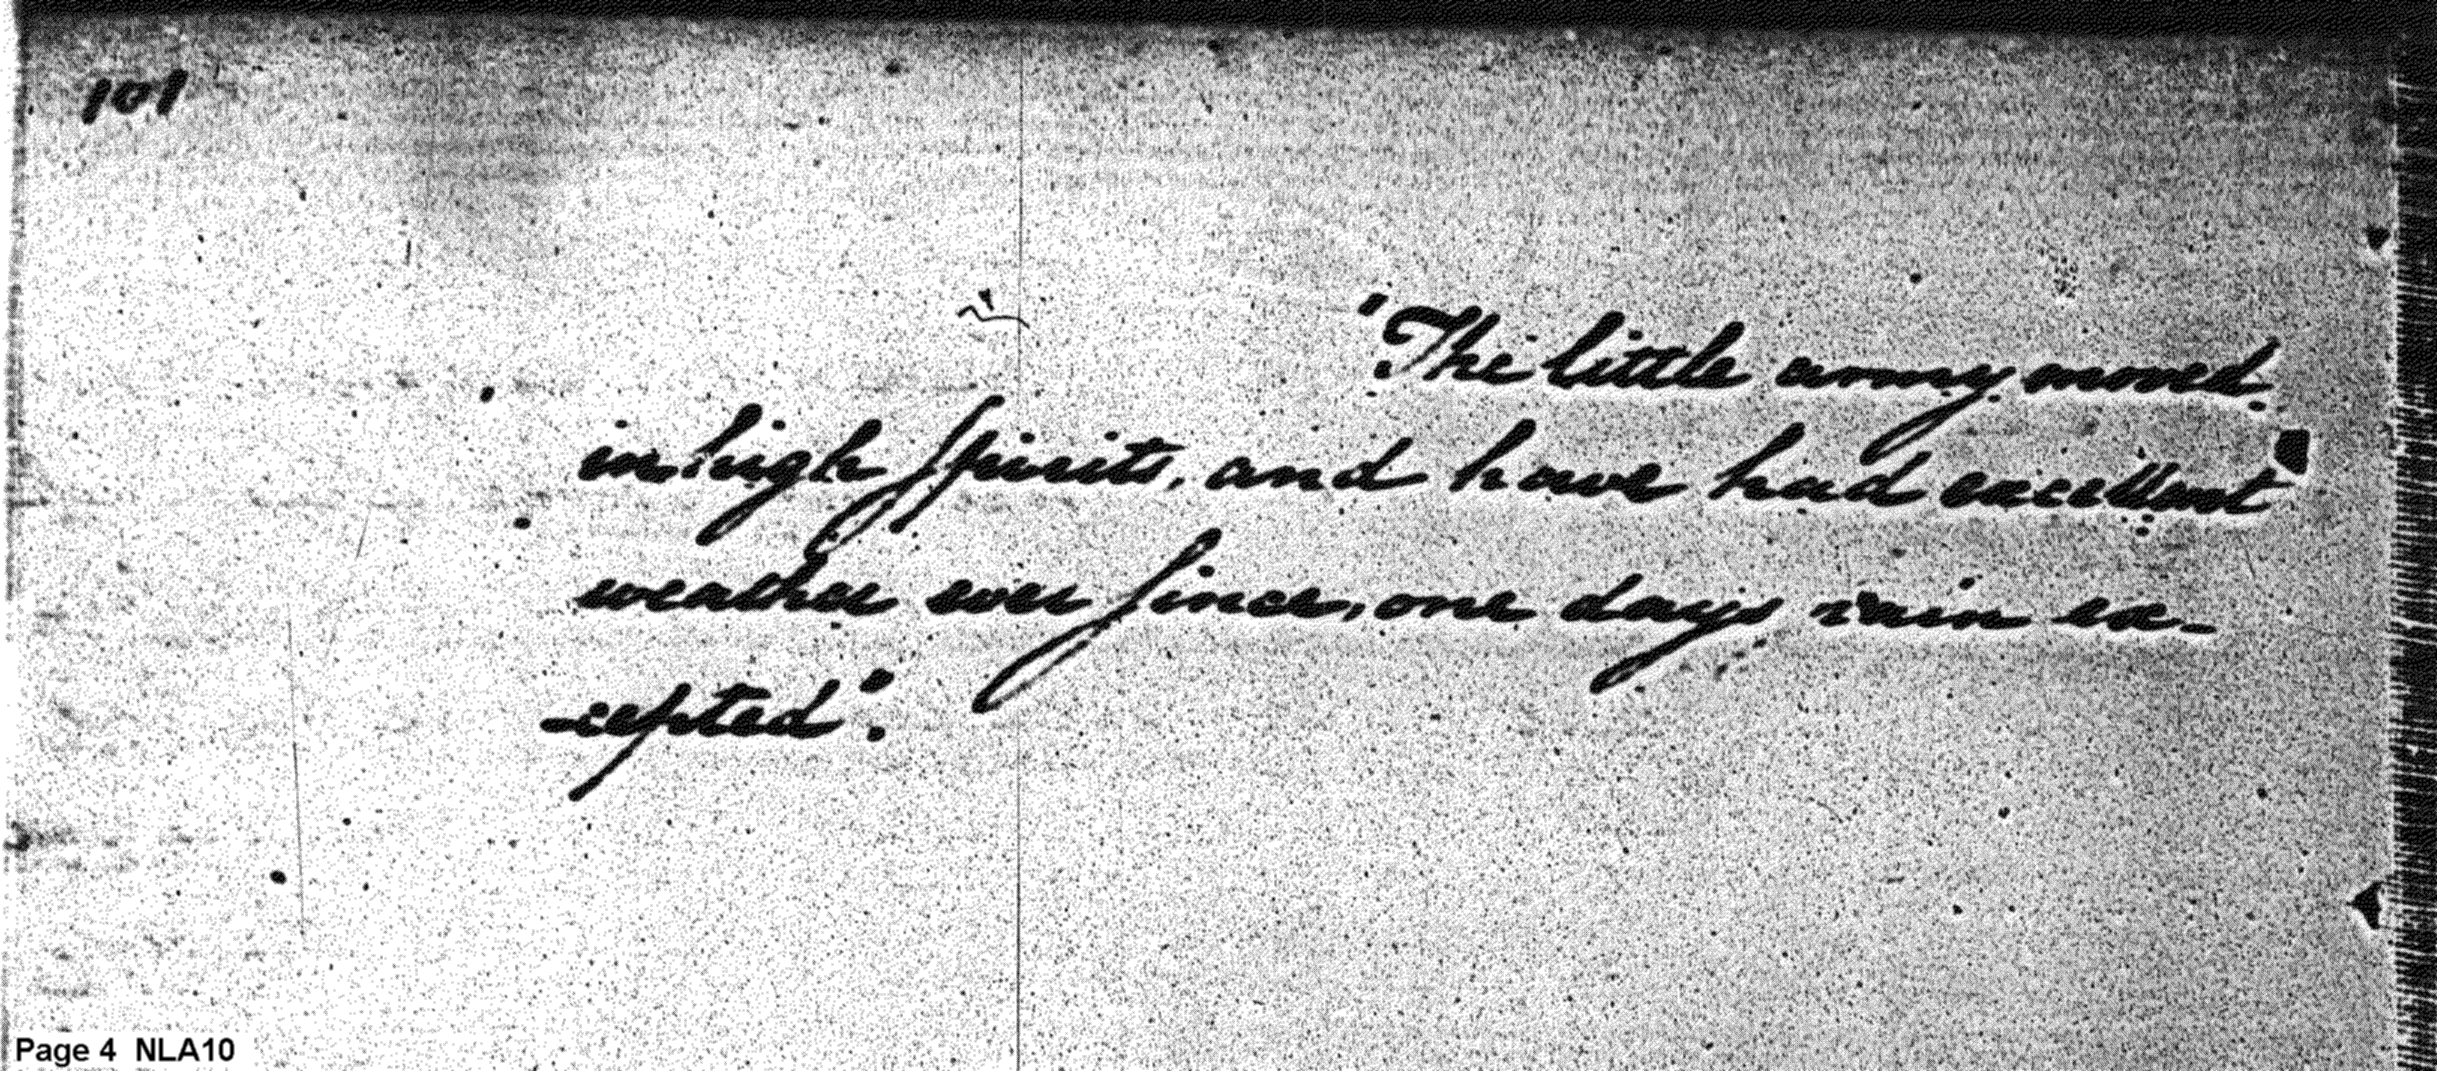 101
"The little army moved
in high Spirits, and have had excellent
weather ever Since, one days rain ex-
-cepted".
Page 4 NLA10